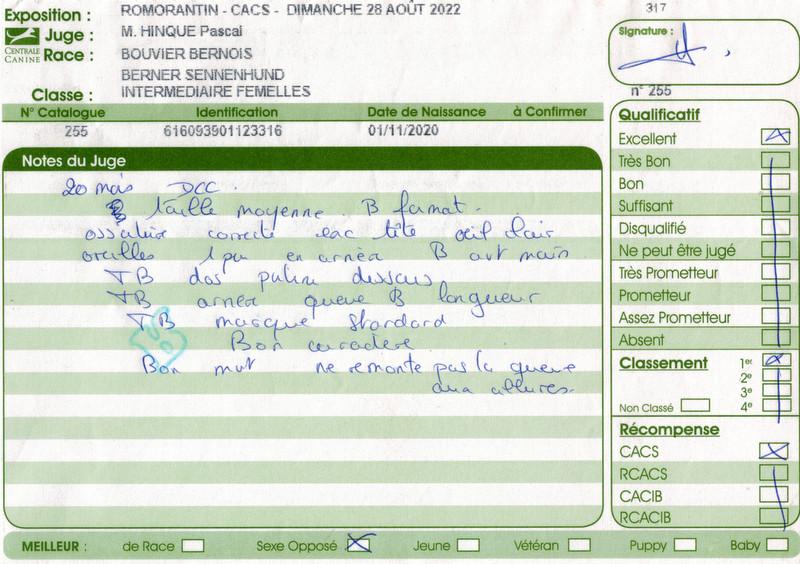 Exposition : ROMORANTIN - CACS - DIMANCHE 28 AOÛT 2022
317
CENTRALE CANINE
Juge : M. HINQUE Pascal
Signature :
Race : BOUVIER BERNOIS
BERNER SENNENHUND
Classe : INTERMEDIAIRE FEMELLES
n° 255
N° Catalogue Identification Date de Naissance à Confirmer
255 616093901123316 01/11/2020
Notes du Juge
20 mois DCC.
taille moyenne. B format.
ossature correcte tête œil clair
oreilles 1 peu en arrière B avt main
TB dos dessus
TB arrière queue B longueur
TB masque standard
Bon caractère
Bon mvt ne remonte pas la queue
aux allures.
Qualificatif
Excellent
Très Bon
Bon
Suffisant
Disqualifié
Ne peut être jugé
Très Prometteur
Prometteur
Assez Prometteur
Absent
Classement 1er
2e
3e
Non Classé 4e
Récompense
CACS
RCACS
CACIB
RCACIB
MEILLEUR : de Race Sexe Opposé Jeune Vétéran Puppy Baby